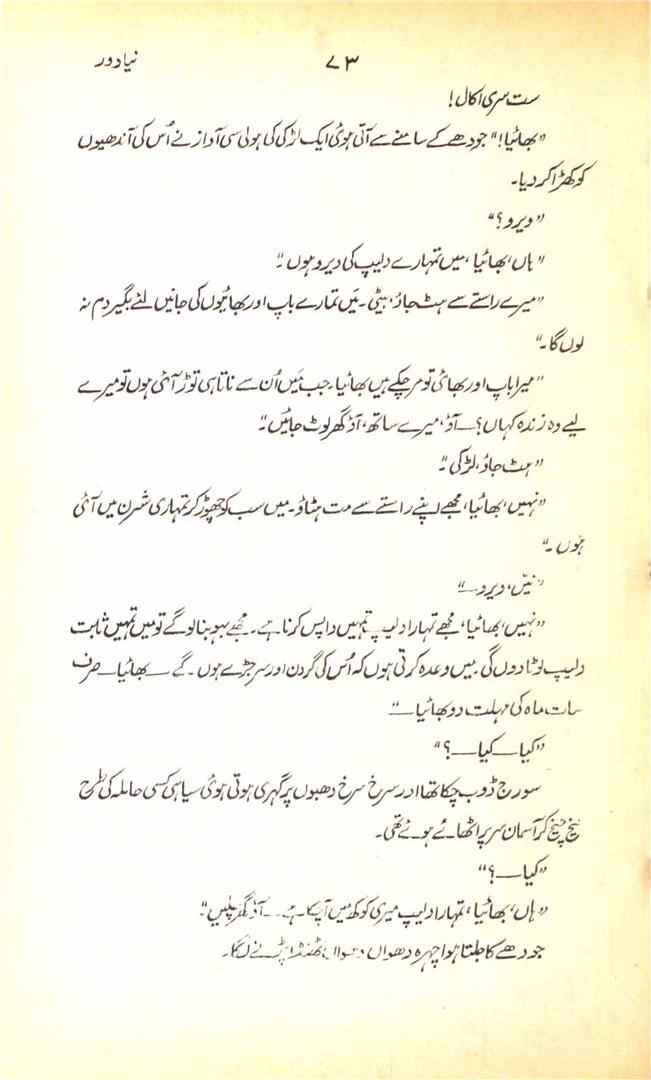 ۷۳ نیا دور
ست سری اکال!
”بھائیا!“ جودھے کے سامنے سے آتی ہوئی ایک لڑکی کی ہولی سی آواز نے اُس کی آندھیوں
کو کھڑا کر دیا۔
”ویرو؟“
”ہاں، بھائیا، میں تمہارے دلیپ کی ویرو ہوں۔“
”میرے راستے سے ہٹ جاؤ، بیٹی۔ مَیں تمارے باپ اور بھائیوں کی جانیں لئے بگیر دم نہ
لوں گا۔“
”میرا باپ اور بھائی تو مر چکے ہیں بھائیا۔ جب مَیں اُن سے ناتا ہی توڑ آئی ہوں تو میرے
لیے وہ زندہ کہاں؟ — آؤ، میرے ساتھ، آؤ گھر لوٹ جائیں۔“
”ہٹ جاؤ، لڑکی۔“
”نہیں، بھائیا، مجھے اپنے راستے سے مت ہٹاؤ۔ میں سب کو چھوڑ کر تمہاری شرن میں آئی
ہوں۔“
”نئیں، ویرو —“
”نہیں، بھائیا، مجھے تمہارا دلیپ تمہیں واپس کرنا ہے۔ مجھے بہو بنا لو گے تو میں تمہیں ثابت
دلیپ لوٹا دوں گی۔ میں وعدہ کرتی ہوں کہ اُس کی گردن اور سر جڑے ہوں۔ گے — بھائیا — صرف
سات ماہ کی مہلت دو بھائیا —“
”کیا — کیا —؟“
سورج ڈوب چکا تھا اور سرخ سرخ دھبوں پر گہری ہوتی ہوئی سیاہی کسی حاملہ کی طرح
چیخ چیخ کر آسمان سر پر اٹھائے ہوئے تھی۔
”کیا —؟“
”ہاں، بھائیا، تمہارا دلیپ میری کوکھ میں آچکا ہے — آؤ گھر چلیں۔“
جودھے کا جلتا ہوا چہرہ دھواں دھواں ٹھنڈا پڑنے لگا۔